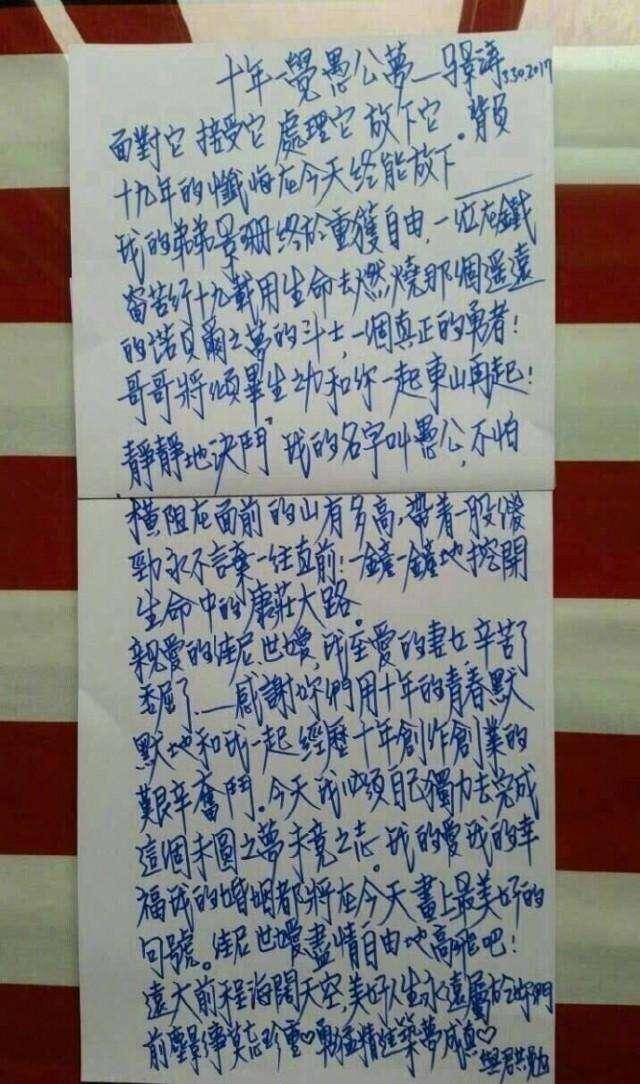 十年一覺愚公夢—景濤330.2017
面對它 接受它 處理它 放下它。背負
十九年的懺悔在今天终能放下
我的弟弟景珊终於重獲自由,一位在鐵
窗苦行十九載用生命去燃燒那個遥遠
的諾貝爾之夢的斗士,一個真正的勇者!
哥哥將傾畢生之力和你一起東山再起!
靜靜地決鬥,我的名字叫愚公,不怕
橫阻在面前的山有多高,帶着一股傻
勁永不言棄一往直前!一鏟一鏟地挖開
生命中的康莊大路。
親愛的佳尼、世嬡,我至愛的妻女,辛苦了
委屈了——感謝妳們用十年的青春默
默地和我一起經歷十年創作創業的
艱辛奮鬥。今天我必須自己獨力去完成
這個未圓之夢未竟之志。我的愛我的幸
福我的婚姻都將在今天畫上最美好的
句號。佳尼世嬡盡情自由地高飛吧!
遠大前程海闊天空,美好人生永遠屬於妳們
前塵景緣莫忘珍重♡勇猛精進築夢成真♡與君共勉